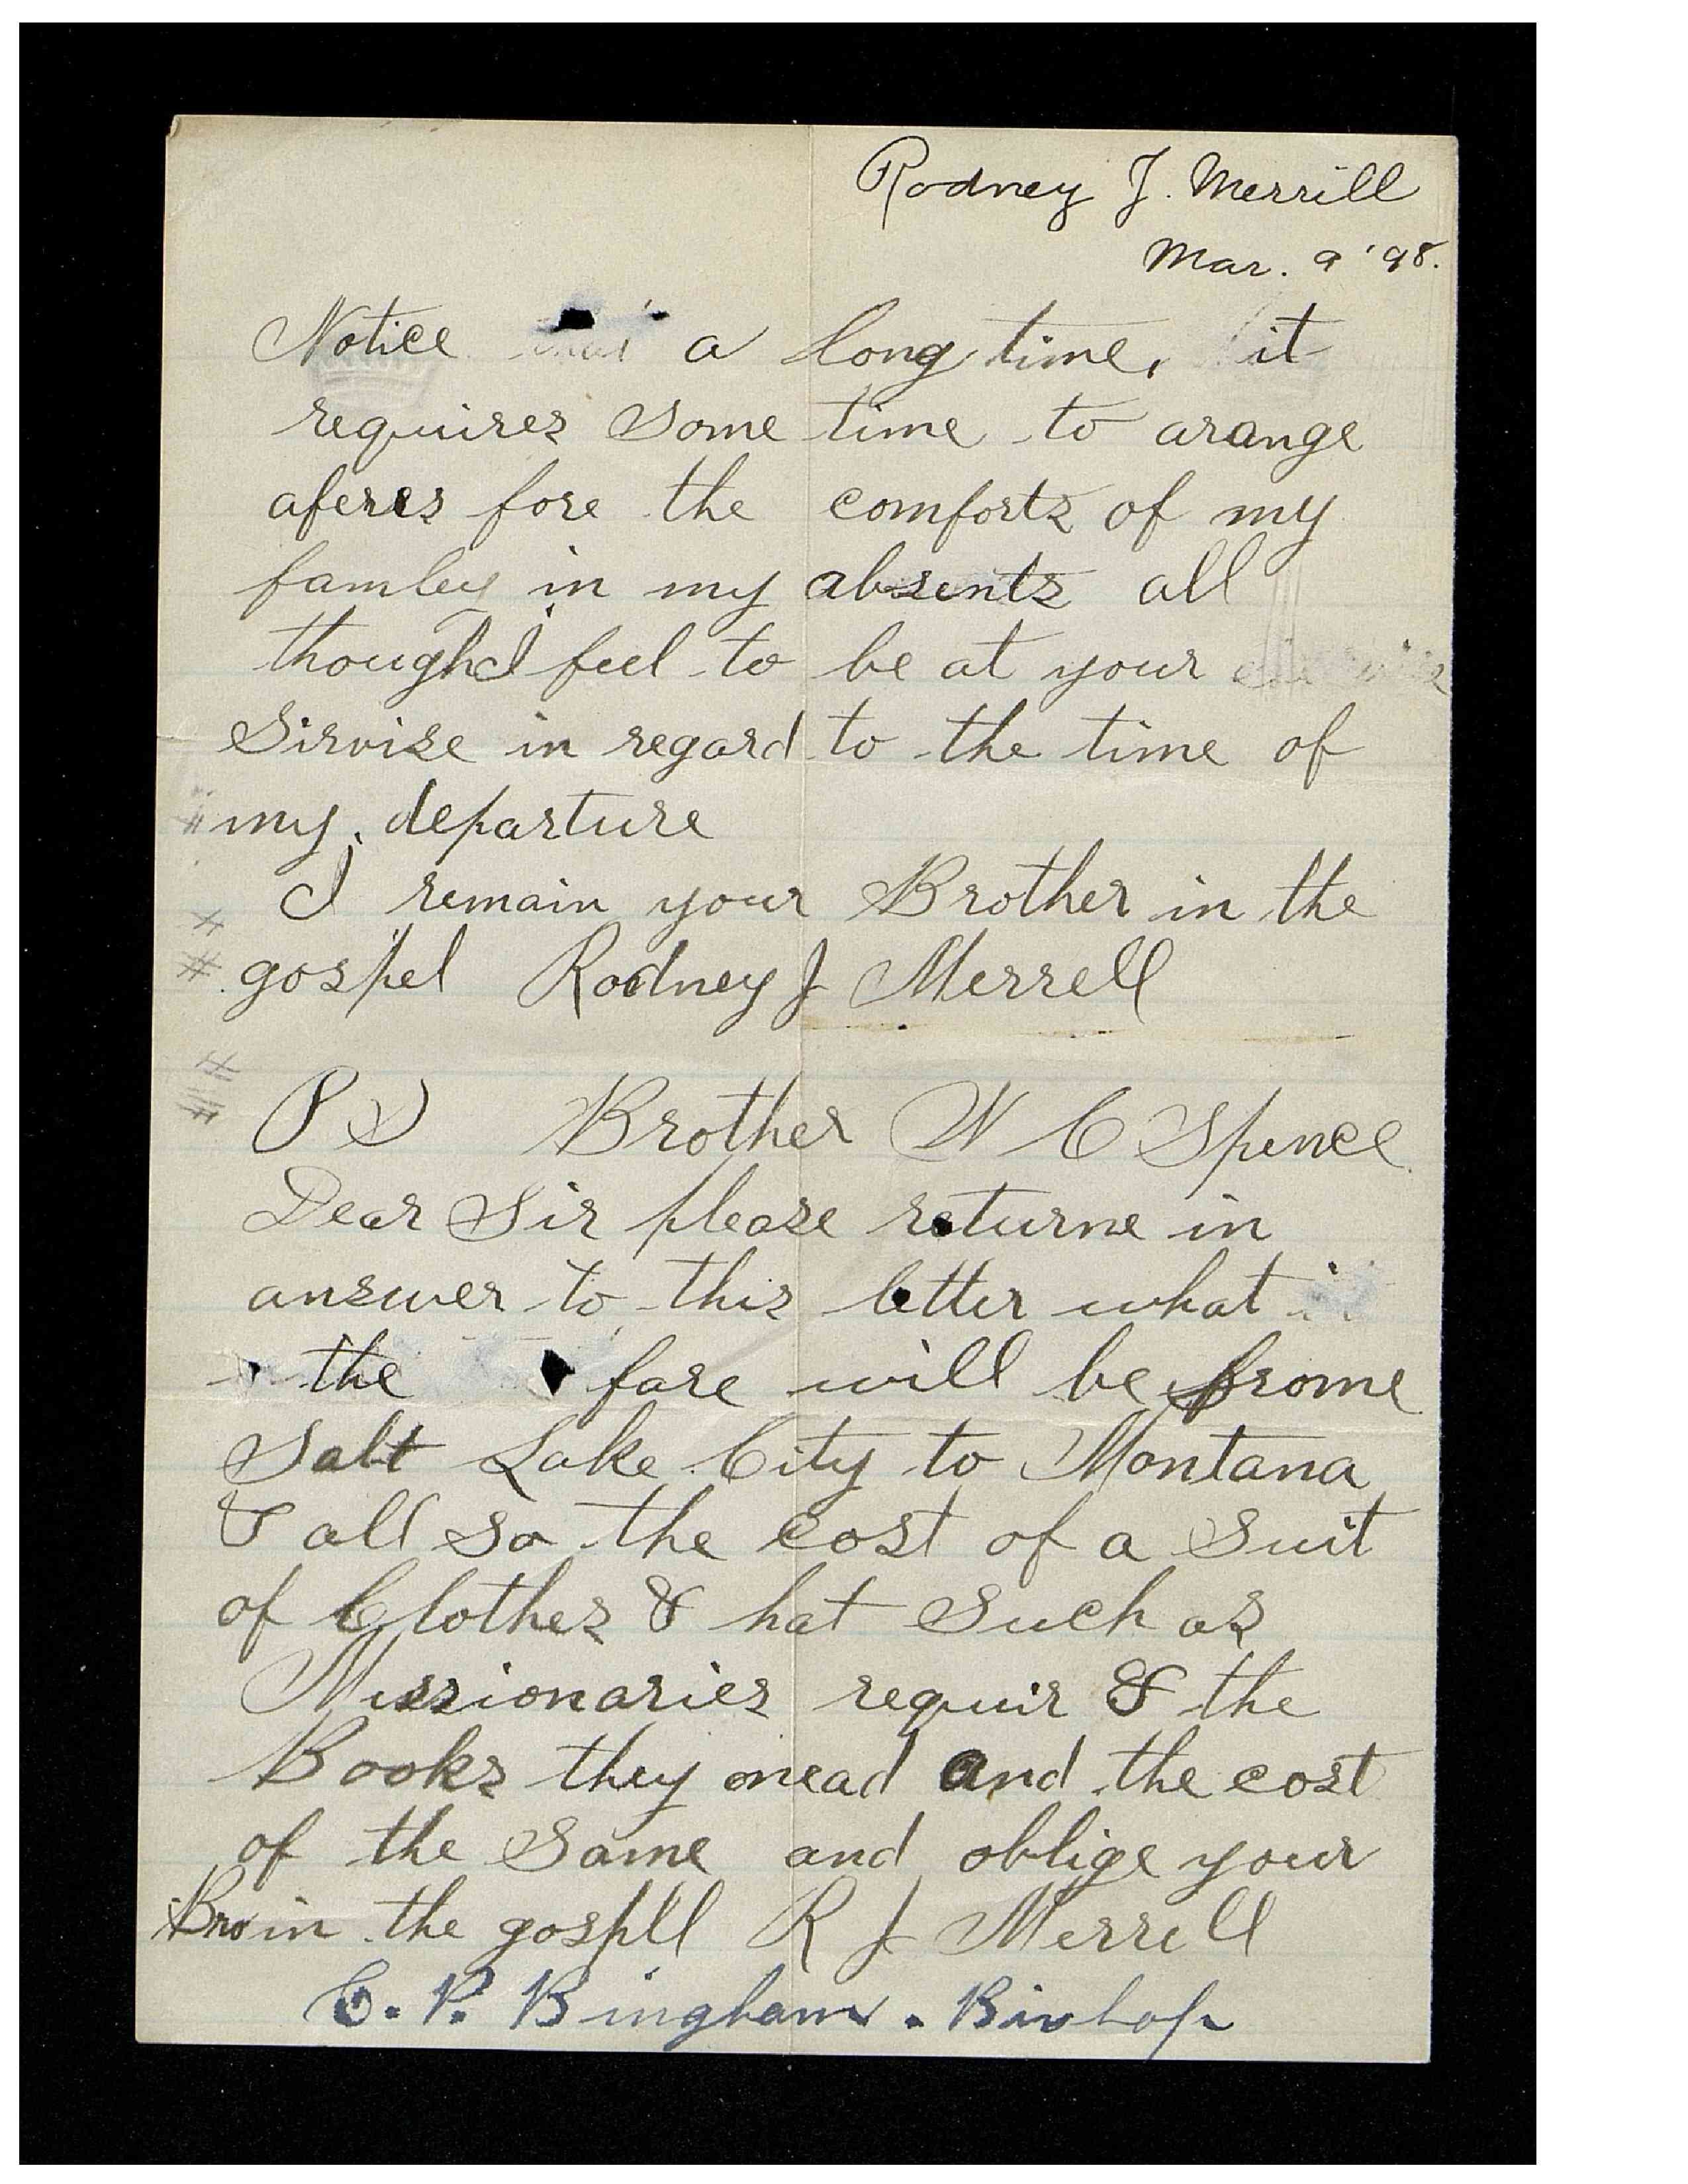 Rodney J. Merrill
Mar. 9 '98.
Notice a long time, it
requires Some time to arange
aferes fore the comforts of my
famley in my absents all
though I feel to be at your
Sirvise in regard to the time of
my departure
I remain your Brother in the
gospel Rodney J Merrell
P S Brother W C Spence
Dear Sir please returne in
answer to this letter what
the fare will be frome
Salt Lake City to Montana
& all so the cost of a Suit
of Clothes & hat Such as
Missionaries requir & the
Books they nead and the cost
of the Same and oblige your
Bro in the gospll R J Merrell
C. P. Bingham. Bishop